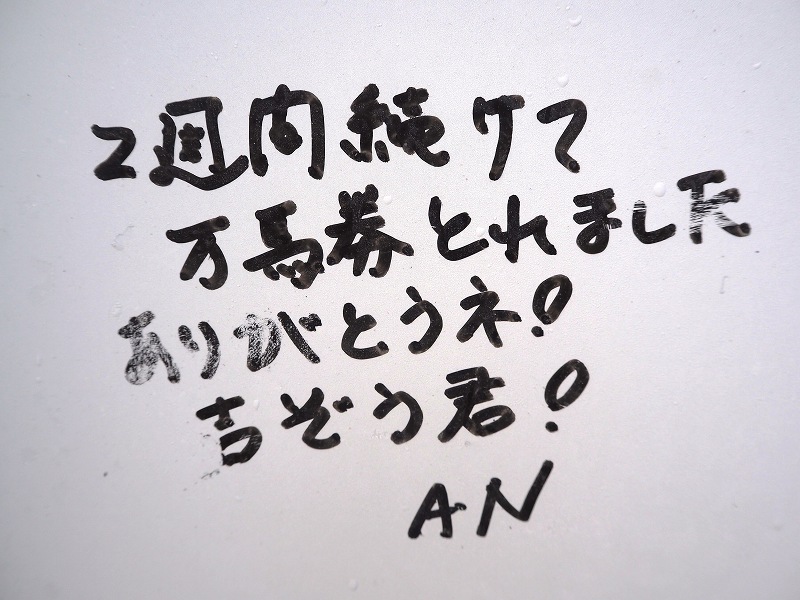 2週间続けて
万馬券とれました
ありがとうネ!
吉ぞう君!
AN